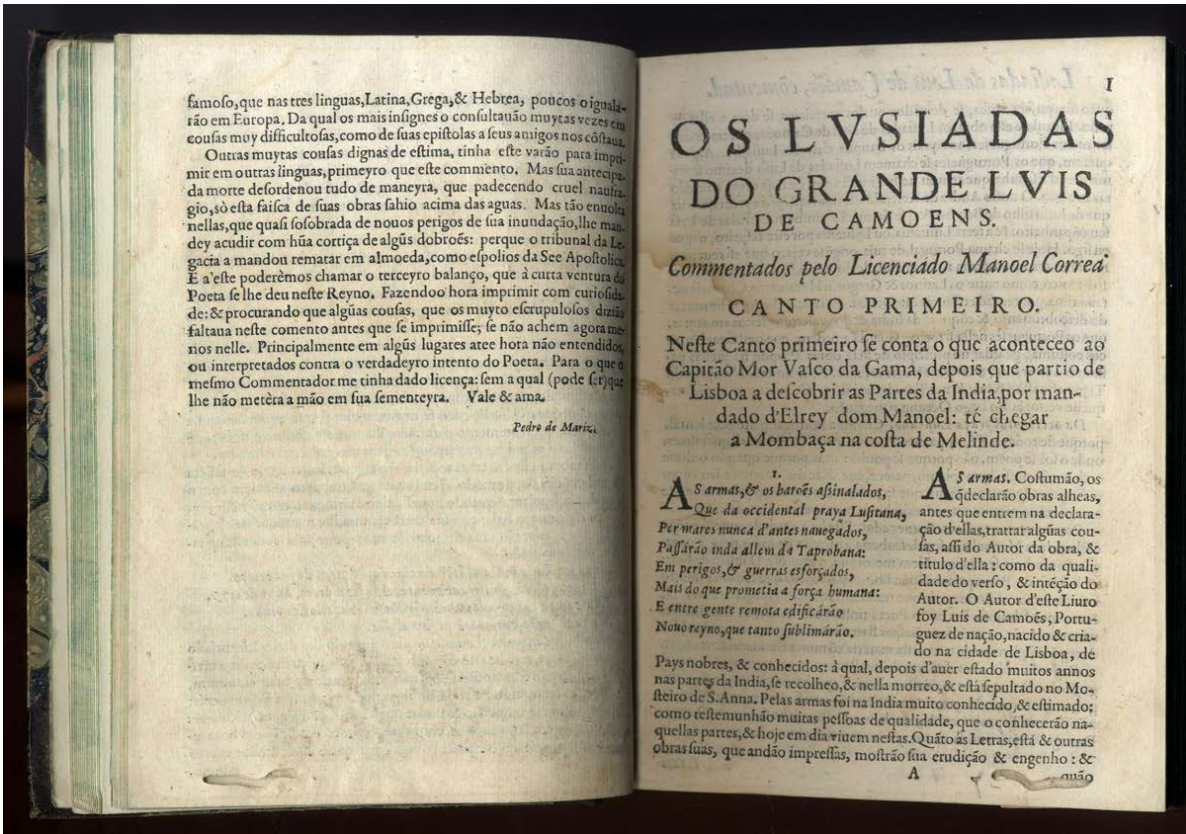 famoſo,que nas tres linguas,Latina,Grega,& Hebrea, poucos o iguala-
rão em Europa. Da qual os mais inſignes o conſultauão muytas vezes em
couſas muy difficultoſas,como de ſuas epiſtolas a ſeus amigos nos cõſtaua.
Outras muytas couſas dignas de eſtima, tinha eſte varão para impri-
mir em outras linguas,primeyro que eſte commento. Mas ſua antecipa-
da morte deſordenou tudo de maneyra, que padecendo cruel naufra-
gio,sò eſta faiſca de ſuas obras ſahio acima das aguas. Mas tão enuolta
nellas,que quaſi ſoſobrada de nouos perigos de ſua inundação,lhe man-
dey acudir com hũa cortiça de algũs dobroẽs: perque o tribunal da Le-
gacia a mandou rematar em almoeda,como eſpolios da See Apoſtolica.
E a'eſte poderẽmos chamar o terceyro balanço, que à curta ventura do
Poeta ſe lhe deu neſte Reyno. Fazendoo hora imprimir com curioſida-
de:& procurando que algũas couſas, que os muyto eſcrupuloſos dizião
faltaua neſte comento antes que ſe imprimiſſe; ſe não achem agora me-
nos nelle. Principalmente em algũs lugares atee hora não entendidos,
ou interpretados contra o verdadeyro intento do Poeta. Para o que o
meſmo Commentador me tinha dado licença: ſem a qual (pode ſer)que
lhe não metèra a mão em ſua ſementeyra. Vale & ama.
Pedro de Mariz.
1
OS LVSIADAS
DO GRANDE LVIS
DE CAMOENS.
Commentados pelo Licenciado Manoel Correa
CANTO PRIMEIRO.
Neſte Canto primeiro ſe conta o que aconteceo ao
Capitão Mor Vaſco da Gama, depois que partio de
Lisboa a deſcobrir as Partes da India,por man-
dado d'Elrey dom Manoel: té chegar
a Mombaça na coſta de Melinde.
1.
AS armas,& os barões aſsinalados,
Que da occidental praya Luſitana,
Per mares nunca d'antes nauegados,
Paſſárão inda allem da Taprobana:
Em perigos,& guerras esforçados,
Mais do que prometia a força humana:
E entre gente remota edificárão
Nouo reyno,que tanto ſublimárão.
AS armas. Coſtumão, os
q̃declarão obras alheas,
antes que entrem na declara-
ção d'ellas,trattar algũas cou-
ſas, aſſi do Autor da obra, &
titulo d'ella : como da quali-
dade do verſo , & intẽção do
Autor. O Autor d'eſte Liuro
foy Luis de Camoẽs, Portu-
guez de nação,nacido & cria-
do na cidade de Lisboa, de
Pays nobres, & conhecidos: à qual, depois d'auer eſtado muitos annos
nas partes da India,ſe recolheo,& nella morreo,& eſtá ſepultado no Mo-
ſteiro de S.Anna. Pelas armas foi na India muito conhecido,& eſtimado;
como teſtemunhão muitas peſſoas de qualidade, que o conhecerão na-
quellas partes,& hoje em dia viuem neſtas.Quãto às Letras,eſtá & outras
obras ſuas, que andão impreſſas, moſtrão ſua erudição & engenho : &
A quão